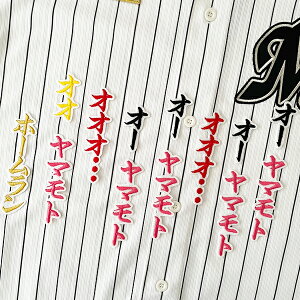 オー ヤマモト
オー ヤマモト
オオオ…
オー ヤマモト
オー ヤマモト
オオオ…
オオ ヤマモト
ホームラン